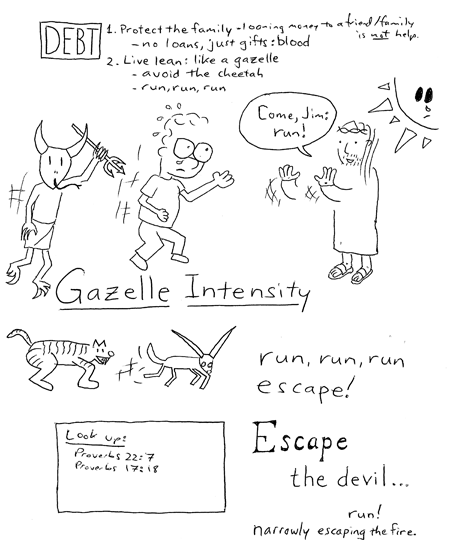 DEBT
1. Protect the family - loaning money to a friend/family
is not help.
- no loans, just gifts: blood
2. Live lean: like a gazelle
- avoid the cheetah
- run, run, run
Come, Jim:
run!
Gazelle Intensity
run, run, run
escape!
Look up:
Proverbs 22:7
Proverbs 17:18
Escape
the devil...
run!
narrowly escaping the fire.